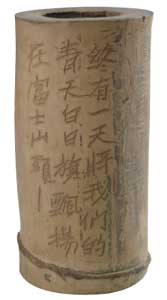 終有一天將我們的
青天白日旗飄揚
在富士山頭!